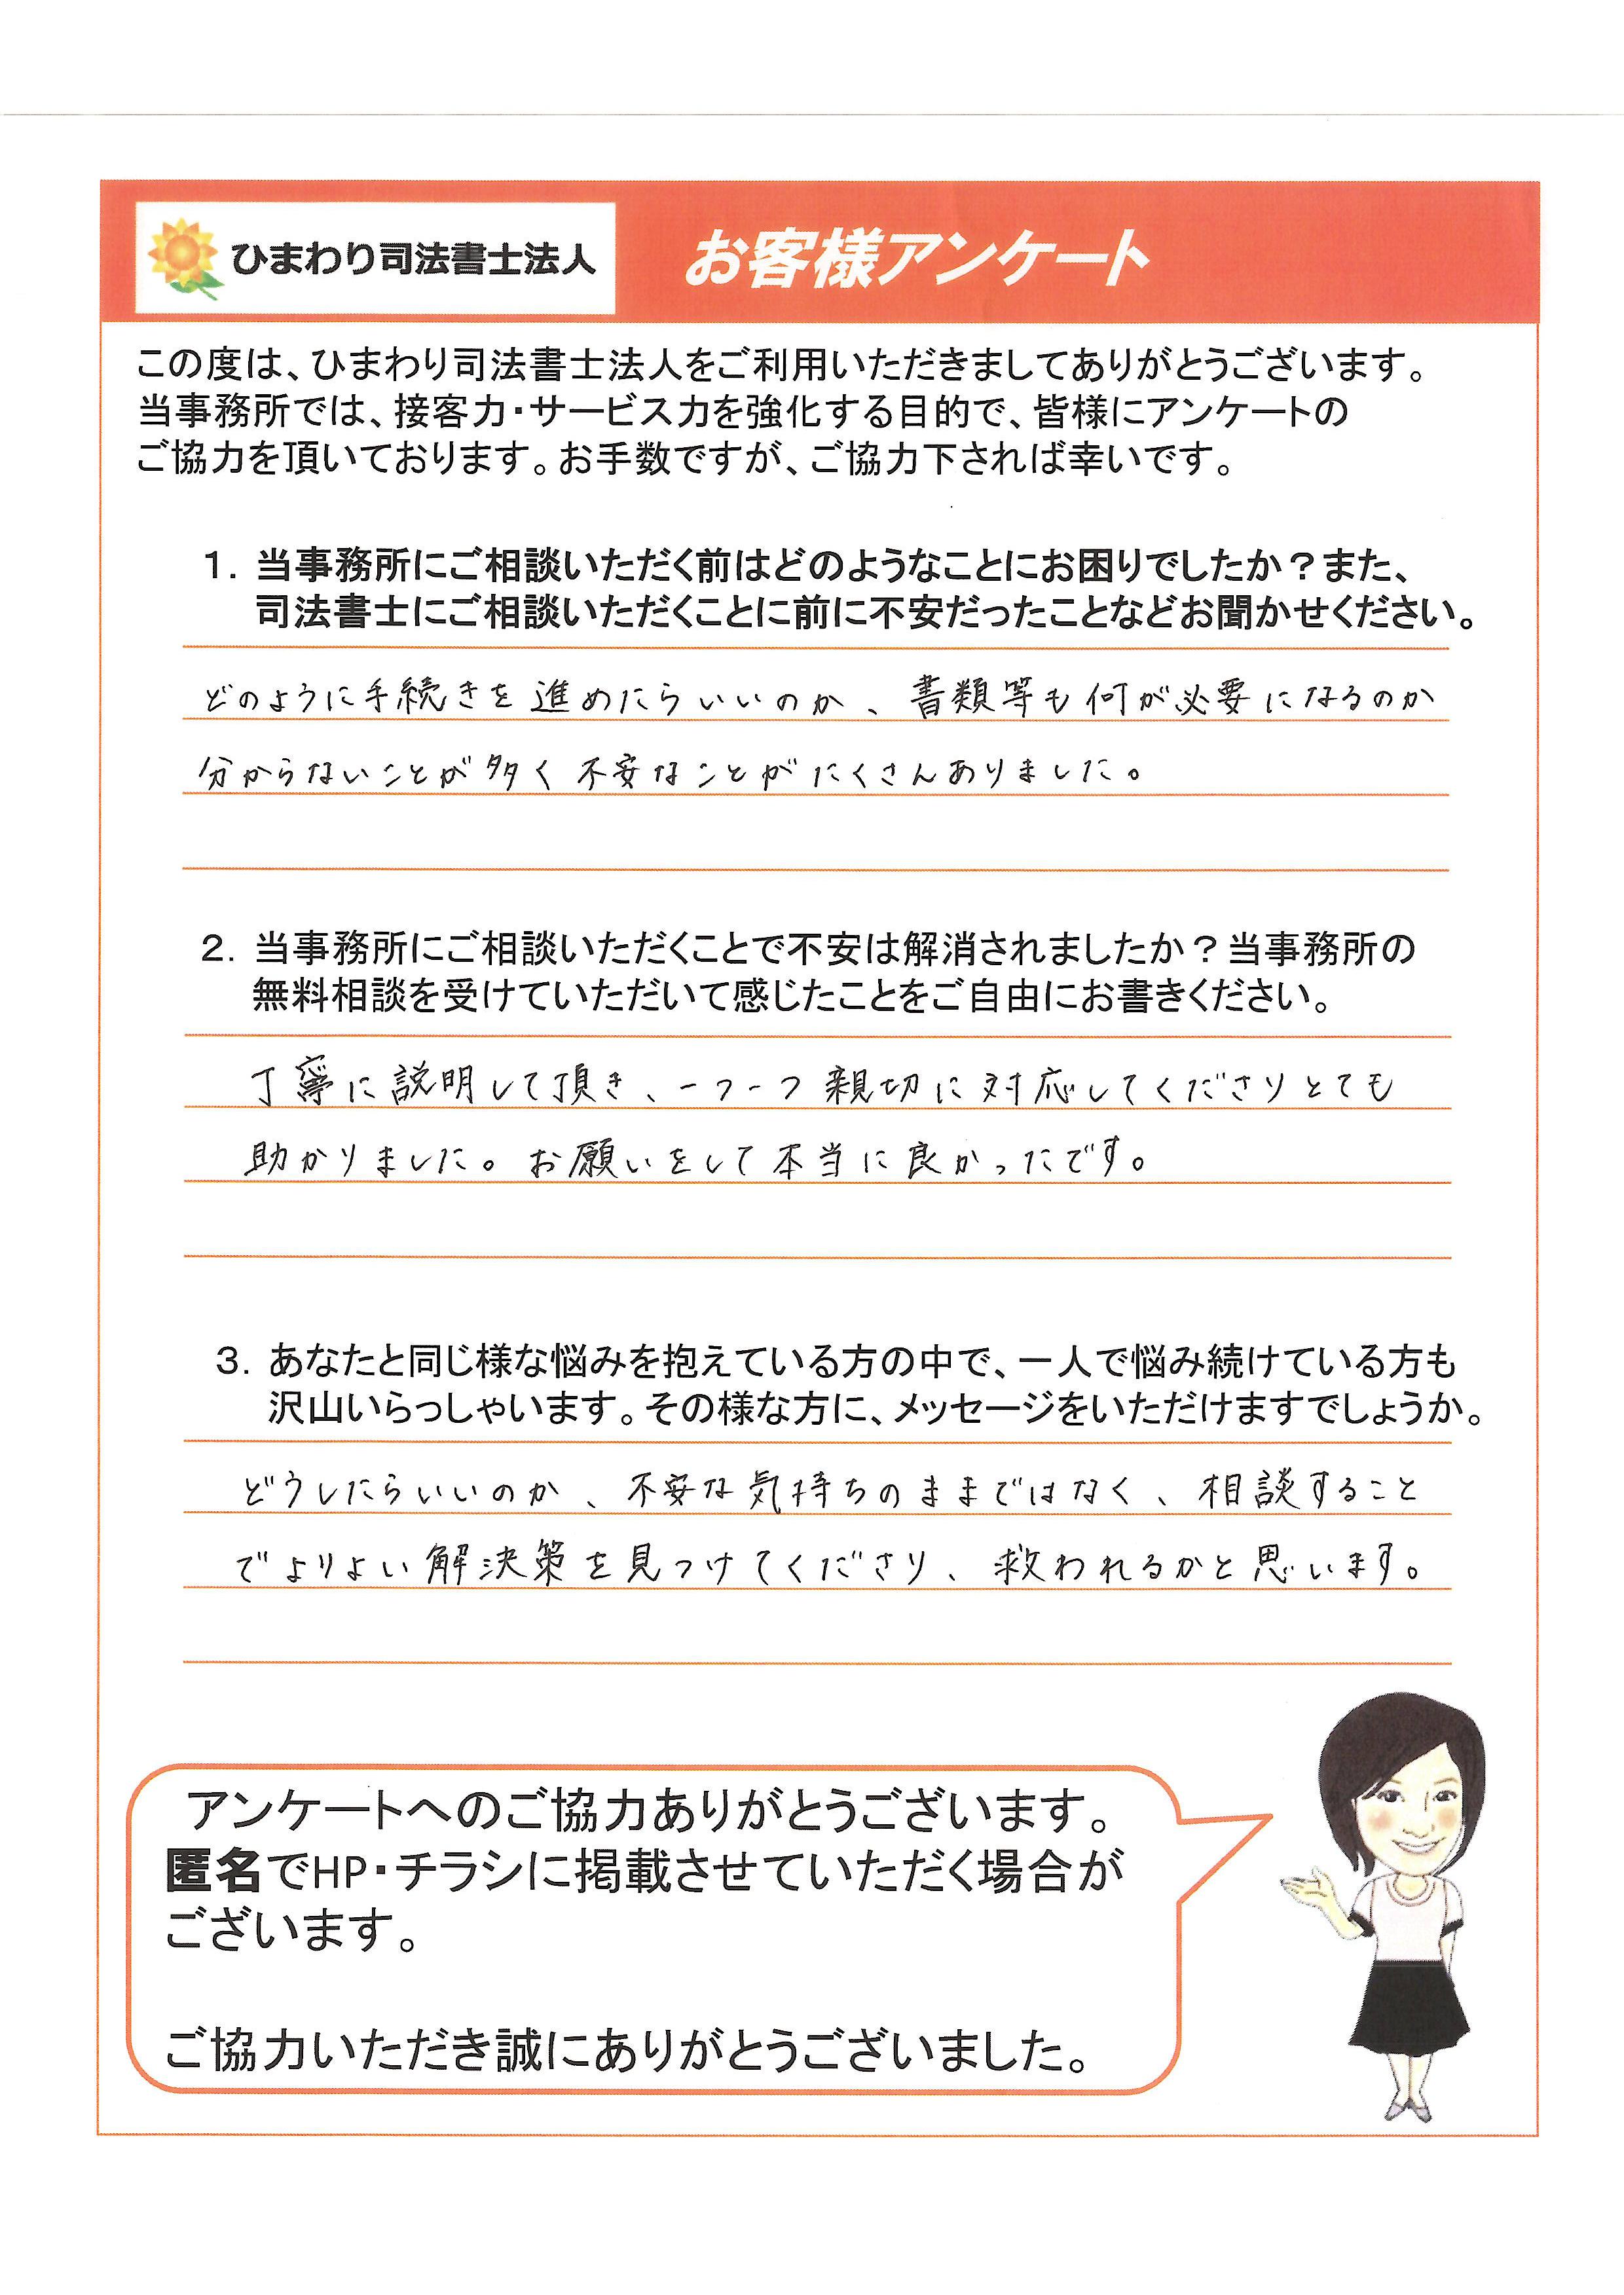 ひまわり司法書士法人
お客様アンケート
この度は、ひまわり司法書士法人をご利用いただきましてありがとうございます。
当事務所では、接客力・サービス力を強化する目的で、皆様にアンケートの
ご協力を頂いております。お手数ですが、ご協力下されば幸いです。
1. 当事務所にご相談いただく前はどのようなことにお困りでしたか？また、
司法書士にご相談いただくことに前に不安だったことなどお聞かせください。
どのように手続きを進めたらいいのか、書類等も何が必要になるのか
分からないことが多く不安なことがたくさんありました。
2. 当事務所にご相談いただくことで不安は解消されましたか？当事務所の
無料相談を受けていただいて感じたことをご自由にお書きください。
丁寧に説明して頂き、一つ一つ親切に対応してくださりとても
助かりました。お願いをして本当に良かったです。
3. あなたと同じ様な悩みを抱えている方の中で、一人で悩み続けている方も
沢山いらっしゃいます。その様な方に、メッセージをいただけますでしょうか。
どうしたらいいのか、不安な気持ちのままではなく、相談すること
でよりよい解決策を見つけてくださり、救われるかと思います。
アンケートへのご協力ありがとうございます。
匿名でHP・チラシに掲載させていただく場合が
ございます。
ご協力いただき誠にありがとうございました。